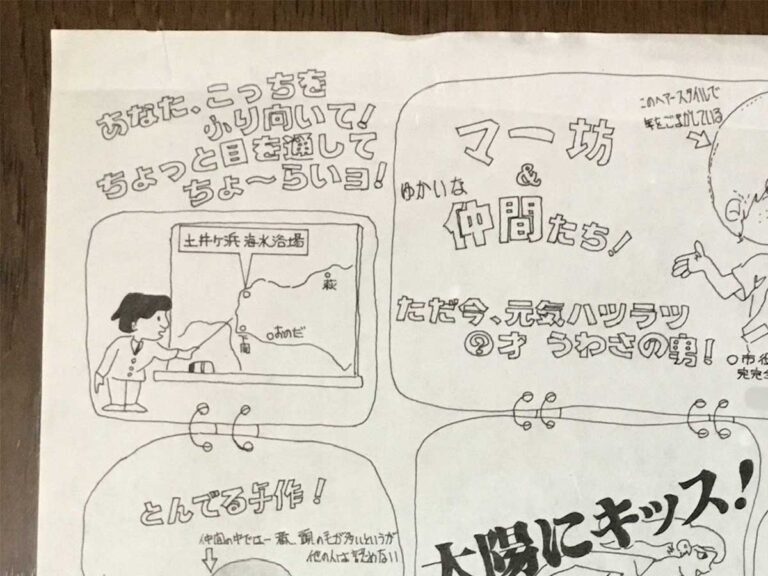 あなた、こっちを
ふり向いて!
ちょっと目を通して
ちょ〜らいヨ!
土井ヶ浜海水浴場
萩
おのだ
下関
マー坊
&
ゆかいな
仲間たち!
このヘアースタイルで
年をごまかしている
ただ今、元気ハツラツ
?才 うわさの男!
市役
完全
とんでる与作!
仲間の中では一番、頭の毛が多いというが
他の人は認めない
太陽にキッス!